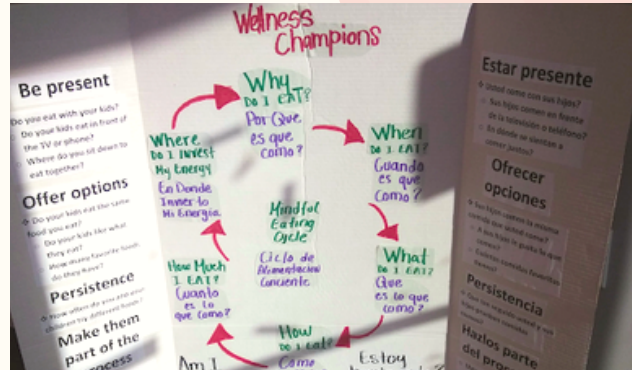 Wellness
Champions
Be present
Do you eat with your kids?
Do your kids eat in front of
the TV or phone?
Where do you sit down to
eat together?
Offer options
Do your kids eat the same
food you eat?
Do your kids like what
they eat?
How many favorite foods
do they have?
Persistence
How often do you and your
children try different foods?
Make them
part of the
process
Why
DO I EAT?
Por Que
es que
como?
When
DO I EAT?
Cuando
es que
como?
What
DO I EAT?
Que
es lo que
como?
How
DO I Eat?
Como
How Much
I EAT?
Cuanto
es Lo
que como?
Where
DO I Invest
My Energy
En Donde
Invierto
Mi Energia
Mindful
Eating
Cycle
Ciclo de
Alimentacion
Conciente
Am I
Estoy
Estar presente
Usted come con sus hijos?
Sus hijos comen en frente
de la televisión o teléfono?
En dónde se sientan a
comer juntos?
Ofrecer
opciones
Sus hijos comen la misma
comida que usted come?
A sus hijos le gusta lo que
comen?
Cuántas comidas favoritas
tienen?
Persistencia
Hazlos parte
del proceso